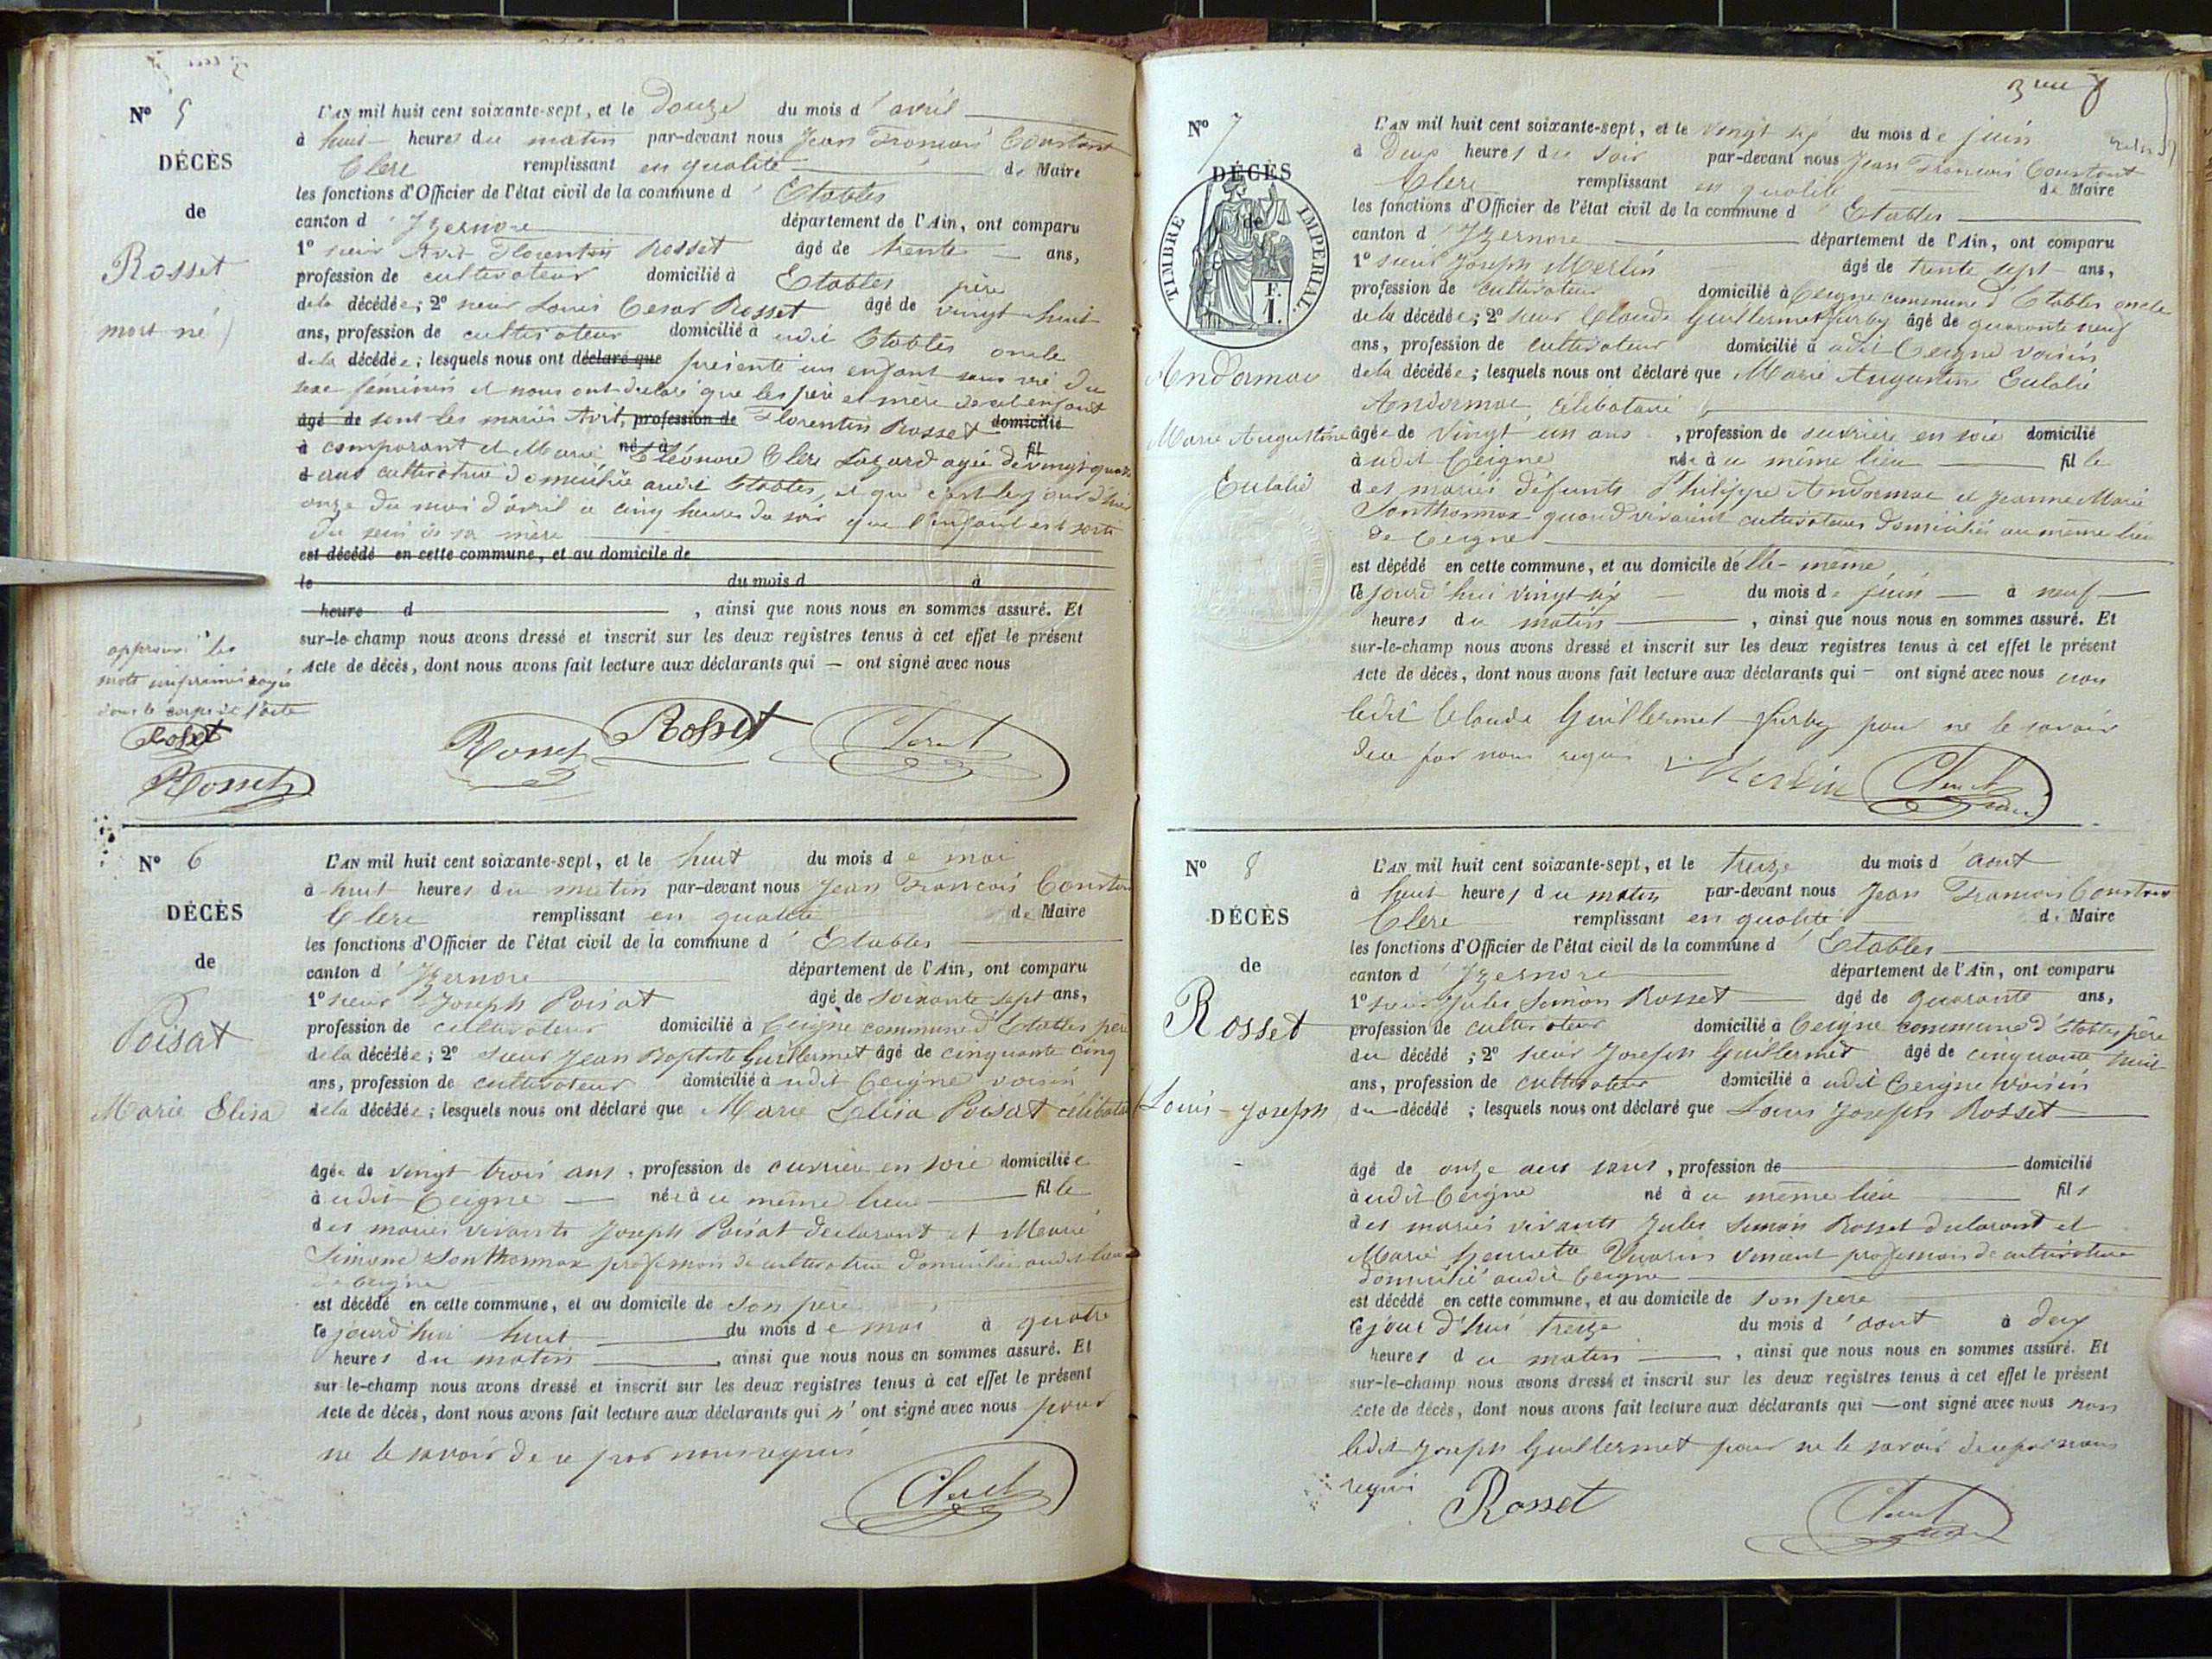 N° 5
DÉCÈS
de
Rosset
mort né
L'AN mil huit cent soixante-sept, et le douze du mois d'avril
à huit heures du matin par-devant nous Jean François Constant
Clere remplissant en qualité de Maire
les fonctions d'Officier de l'état civil de la commune d'Etables
canton d'Izernore département de l'Ain, ont comparu
1° sieur Avit Florentin Rosset âgé de trente ans,
profession de cultivateur domicilié à Etables père
de la décédée; 2° sieur Louis Cesar Rosset âgé de vingt huit
ans, profession de cultivateur domicilié à udit Etables oncle
de la décédée; lesquels nous ont déclaré que présenté un enfant sans vie du
sexe féminin et nous ont déclaré que les père et mère de cet enfant
âgé de sont les mariés Avit, profession de Florentin Rosset domicilié
à comparant et Marie né à Eléonore Clere Lazard agée de vingt quatre fil
d ans cultivatrice domiciliée audit Etables, et que c'est le jour d'hier
onze du mois d'avril a cinq heures du soir que l'enfant est sorti
du sein de sa mère
est décédé en cette commune, et au domicile de
le du mois d à
heure d , ainsi que nous nous en sommes assuré. Et
sur-le-champ nous avons dressé et inscrit sur les deux registres tenus à cet effet le présent
Acte de décès, dont nous avons fait lecture aux déclarants qui — ont signé avec nous
approuvé les
mots imprimés rayés
dans le corps de l'acte
Rosset
Rosset
Rosset Rosset Clerc
N° 6
DÉCÈS
de
Poisat
Marie Elisa
L'AN mil huit cent soixante-sept, et le huit du mois de mai
à huit heures du matin par-devant nous Jean François Constan
Clere remplissant en qualité de Maire
les fonctions d'Officier de l'état civil de la commune d'Etables
canton d'Izernore département de l'Ain, ont comparu
1° sieur Joseph Poisat âgé de soixante sept ans,
profession de cultivateur domicilié à Ceigne commune d'Etables père
de la décédée; 2° sieur Jean Baptiste Guillermet âgé de cinquante cinq
ans, profession de cultivateur domicilié à udit Ceigne voisin
de la décédée; lesquels nous ont déclaré que Marie Elisa Poisat célibatai
âgée de vingt trois ans, profession de ouvrière en soie domiciliée
à udit Ceigne née à ce même lieu fille
des mariés vivants Joseph Poisat declarant et Marie
Simone Sonthonnax profession de cultivatrice domiciliée audit lieu
de Ceigne
est décédé en cette commune, et au domicile de son père
ce jourd'hui huit du mois de mai à quatre
heures du matin , ainsi que nous nous en sommes assuré. Et
sur-le-champ nous avons dressé et inscrit sur les deux registres tenus à cet effet le présent
Acte de décès, dont nous avons fait lecture aux déclarants qui n'ont signé avec nous pour
ne le savoir de ce par nous requis
Clerc
3me
N° 7
DÉCÈS
de
TIMBRE IMPERIAL
F.
1.
Andormac
Marie Augustine
Eulalie
L'AN mil huit cent soixante-sept, et le vingt six du mois de juin
à deux heures du soir par-devant nous Jean François Constant
Clere remplissant en qualité de Maire
les fonctions d'Officier de l'état civil de la commune d'Etables
canton d'Izernore département de l'Ain, ont comparu
1° sieur Joseph Merlin âgé de trente sept ans,
profession de cultivateur domicilié à Ceigne commune d'Etables oncle
de la décédée; 2° sieur Claude Guillermet Furby âgé de quarante neuf
ans, profession de cultivateur domicilié à udit Ceigne voisin
de la décédée; lesquels nous ont déclaré que Marie Augustine Eulalie
Andormac, célibataire
âgée de vingt un ans, profession de ouvrière en soie domicilié
à udit Ceigne née à ce même lieu fille
des mariés défunts Philippe Andormac et Jeanne Marie
Sonthonnax quand vivaient cultivateurs domiciliés au même lieu
de Ceigne
est décédé en cette commune, et au domicile d'elle-même
ce jourd'hui vingt six du mois de juin à neuf
heures du matin , ainsi que nous nous en sommes assuré. Et
sur-le-champ nous avons dressé et inscrit sur les deux registres tenus à cet effet le présent
Acte de décès, dont nous avons fait lecture aux déclarants qui — ont signé avec nous non
ledit Claude Guillermet Furby pour ne le savoir
de ce par nous requis Merlin Clerc
N° 8
DÉCÈS
de
Rosset
Louis-Joseph
L'AN mil huit cent soixante-sept, et le treize du mois d'aout
à huit heures du matin par-devant nous Jean François Constan
Clere remplissant en qualité de Maire
les fonctions d'Officier de l'état civil de la commune d'Etables
canton d'Izernore département de l'Ain, ont comparu
1° sieur Jules Simon Rosset âgé de quarante ans,
profession de cultivateur domicilié à Ceigne commune d'Etables père
du décédé; 2° sieur Joseph Guillermet âgé de cinquante huit
ans, profession de cultivateur domicilié à udit Ceigne voisin
du décédé; lesquels nous ont déclaré que Louis Joseph Rosset
âgé de onze ans sans, profession de domicilié
à udit Ceigne né à ce même lieu fils
des mariés vivants Jules Simon Rosset declarant et
Marie Henriette Vincent profession de cultivatrice
domicilié audit Ceigne
est décédé en cette commune, et au domicile de son père
ce jour d'hui treize du mois d'aout à deux
heures du matin , ainsi que nous nous en sommes assuré. Et
sur-le-champ nous avons dressé et inscrit sur les deux registres tenus à cet effet le présent
Acte de décès, dont nous avons fait lecture aux déclarants qui — ont signé avec nous non
ledit Joseph Guillermet pour ne le savoir de ce par nous
requis
Rosset Clerc